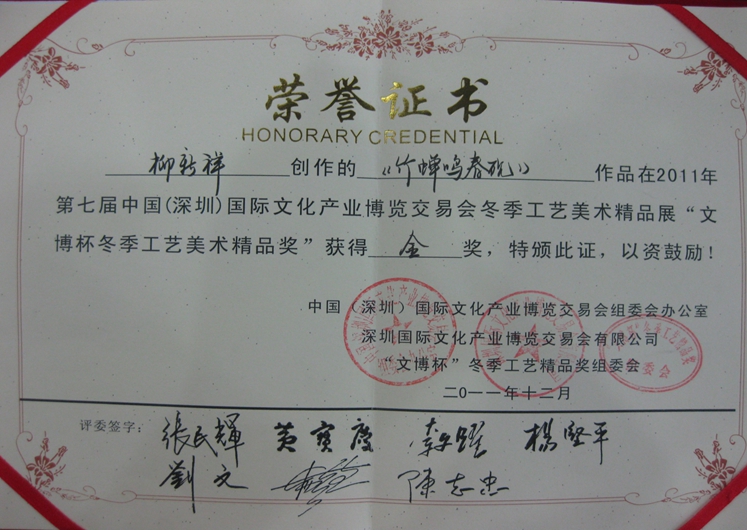 荣誉证书
HONORARY CREDENTIAL
柳新祥 创作的 《竹蝉鸣春砚》 作品在2011年
第七届中国(深圳)国际文化产业博览交易会冬季工艺美术精品展“文
博杯冬季工艺美术精品奖”获得 金 奖，特颁此证，以资鼓励！
中国（深圳）国际文化产业博览交易会组委会办公室
深圳国际文化产业博览交易会有限公司
“文博杯”冬季工艺精品奖组委会
二〇一一年十二月
评委签字：張民輝 黄寶慶 楊堅平
劉文 陳志忠